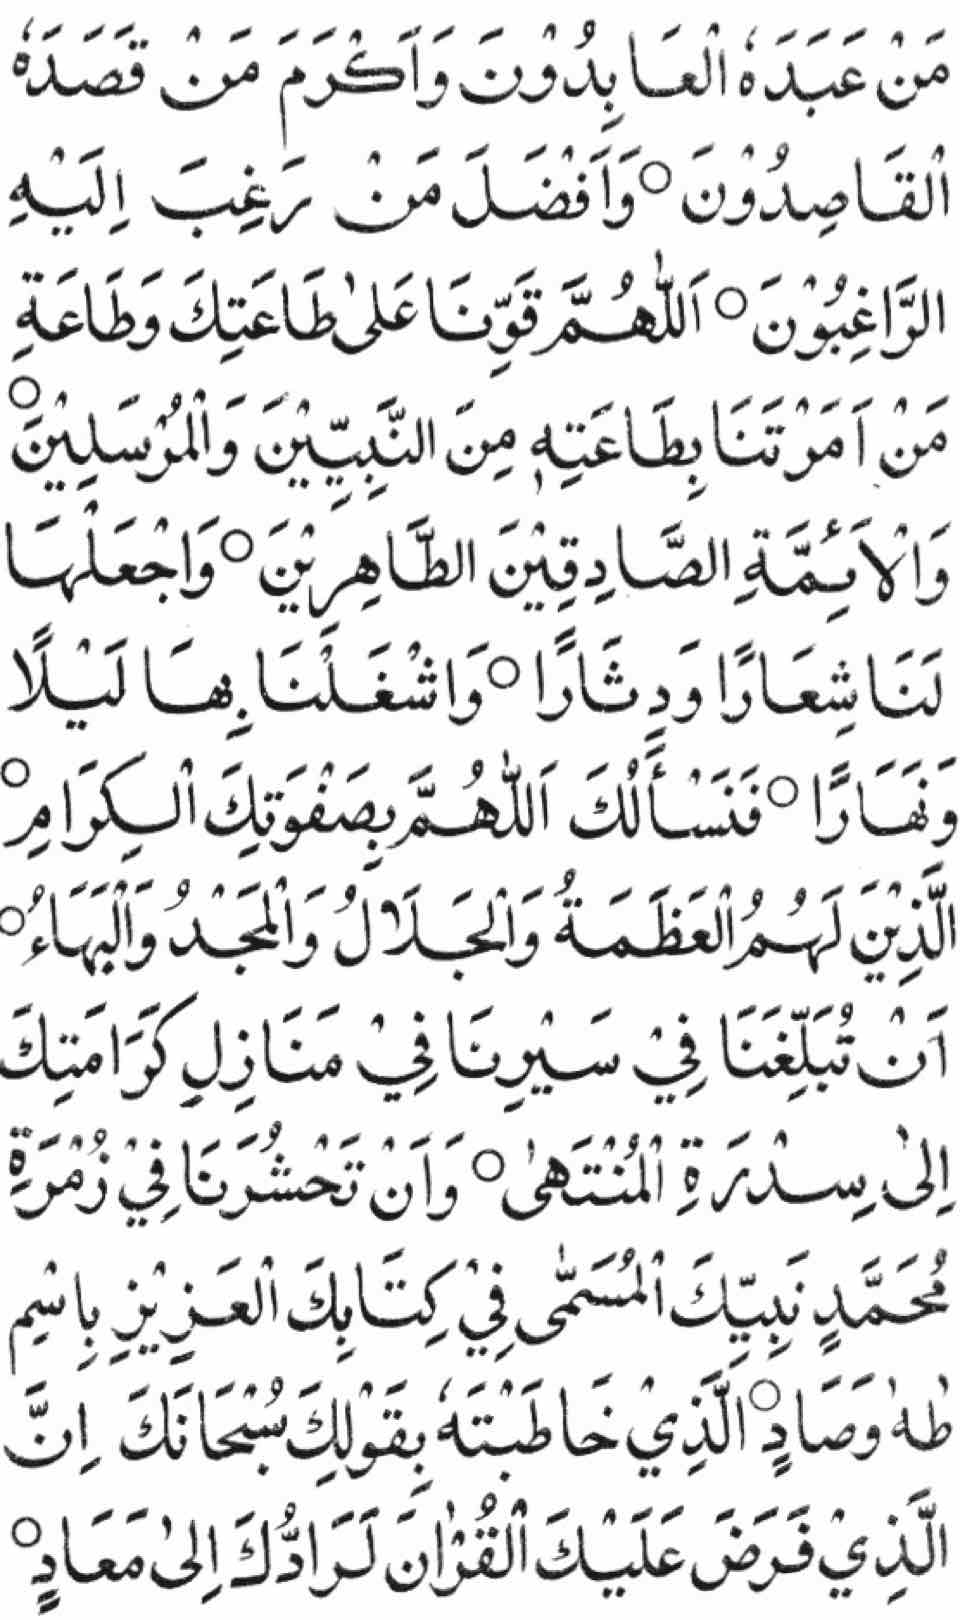 مَنْ عَبَدَهُ الْعَابِدُوْنَ وَاَكْرَمَ مَنْ قَصَدَهٗ
الْقَاصِدُوْنَ ○ وَاَفْضَلَ مَنْ رَغِبَ اِلَيْهِ
الرَّاغِبُوْنَ ○ اَللّٰهُمَّ قَوِّنَا عَلٰى طَاعَتِكَ وَطَاعَةِ
مَنْ اَمَرْتَنَا بِطَاعَتِهٖ مِنَ النَّبِيِّيْنَ وَالْمُرْسَلِيْنَ ○
وَالْاَئِمَّةِ الصَّادِقِيْنَ الطَّاهِرِيْنَ ○ وَاجْعَلْهَا
لَنَا شِعَارًا وَدِثَارًا ○ وَاشْغَلْنَا بِهَا لَيْلًا
وَنَهَارًا ○ فَنَسْأَلُكَ اَللّٰهُمَّ بِصَفْوَتِكَ الْكِرَامِ ○
الَّذِيْنَ لَهُمُ الْعَظَمَةُ وَالْجَلَالُ وَالْمَجْدُ وَالْبَهَاءُ ○
اَنْ تُبَلِّغَنَا فِيْ سَيْرِنَا فِيْ مَنَازِلِ كَرَامَتِكَ
اِلٰى سِدْرَةِ الْمُنْتَهٰى ○ وَاَنْ تَحْشُرَنَا فِيْ زُمْرَةِ
مُحَمَّدٍ نَبِيِّكَ الْمُسَمّٰى فِيْ كِتَابِكَ الْعَزِيْزِ بِاسْمِ
طٰهٰ وَصَادٍ ○ الَّذِيْ خَاطَبْتَهٗ بِقَوْلِكَ سُبْحَانَكَ اِنَّ
الَّذِيْ فَرَضَ عَلَيْكَ الْقُرْاٰنَ لَرَادُّكَ اِلٰى مَعَادٍ ○